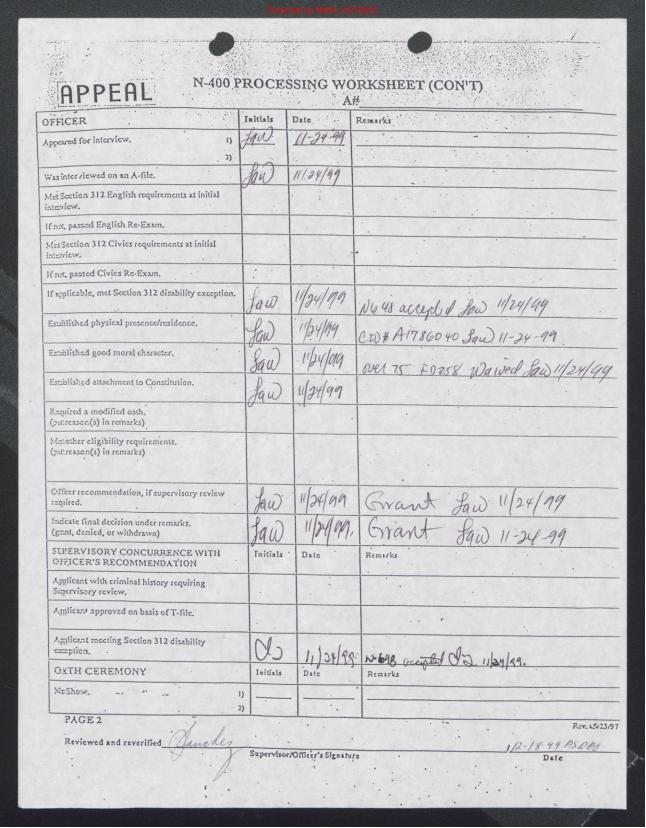 APPEAL
N-400 PROCESSING WORKSHEET (CON'T)
A#
OFFICER Initials Date Remarks
Appeared for interview. 1) Law 11-24-99
2)
Was interviewed on an A-file. Law 11/24/99
Met Section 312 English requirements at initial
interview.
If not, passed English Re-Exam.
Met Section 312 Civics requirements at initial
interview.
If not, passed Civics Re-Exam.
If applicable, met Section 312 disability exception. Law 11/24/99 N648 accepted Law 11/24/99
Established physical presence/residence. Law 11/24/99 CIO# A1786040 Law 11-24-99
Established good moral character. Law 11/24/99 over 75 FD258 Waived Law 11/24/99
Established attachment to Constitution. Law 11/24/99
Required a modified oath.
(put reason(s) in remarks)
Met other eligibility requirements.
(put reason(s) in remarks)
Officer recommendation, if supervisory review
required. Law 11/24/99 Grant Law 11/24/99
Indicate final decision under remarks.
(grant, denied, or withdrawn) Law 11/24/99. Grant Law 11-24-99
SUPERVISORY CONCURRENCE WITH
OFFICER'S RECOMMENDATION Initials Date Remarks
Applicant with criminal history requiring
Supervisory review.
Applicant approved on basis of T-file.
Applicant meeting Section 312 disability
exception. 11/24/99. N-648 accepted 11/24/99.
OATH CEREMONY Initials Date Remarks
No Show. 1)
2)
PAGE 2 Rev. 05/23/97
Reviewed and reverified Sanchez 12-18-99
Supervisor/Officer's Signature Date